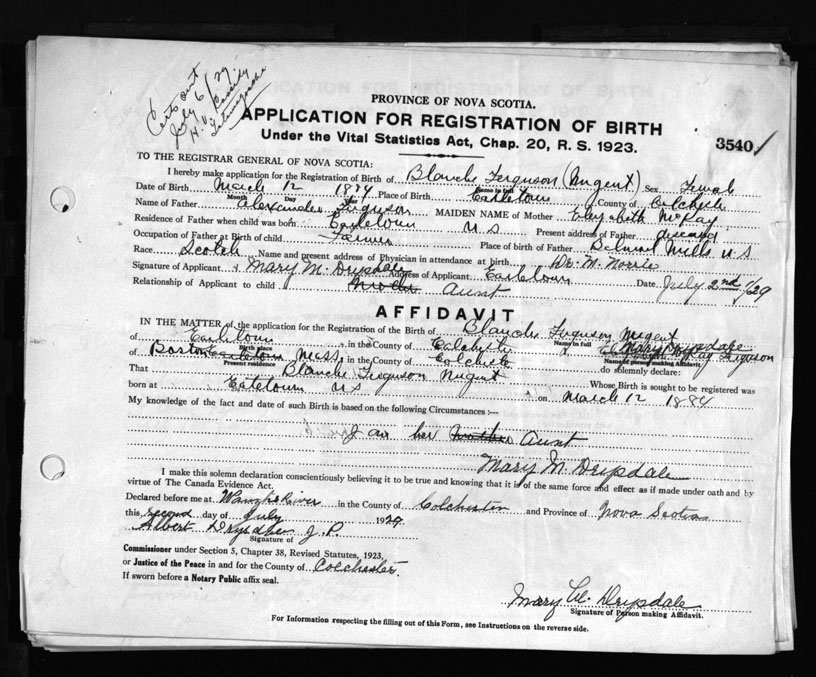 Certs out
July 6/29.
H. V. Cassidy
PROVINCE OF NOVA SCOTIA.
APPLICATION FOR REGISTRATION OF BIRTH
Under the Vital Statistics Act, Chap. 20, R. S. 1923.
3540
TO THE REGISTRAR GENERAL OF NOVA SCOTIA:
I hereby make application for the Registration of Birth of Blanche Ferguson (Nugent) Sex Female
Name in full
Date of Birth March 12 1884 Place of Birth Earltown County of Colchester
Month Day Year
Name of Father Alexander Ferguson MAIDEN NAME of Mother Elizabeth McKay
Residence of Father when child was born Earltown N S Present address of Father deceased
Occupation of Father at Birth of child Farmer Place of birth of Father Belmont Mills N S
Race Scotch Name and present address of Physician in attendance at birth Dr. M. Norrie
Signature of Applicant Mary M. Drysdale Address of Applicant Earltown Date July 2nd /29
Relationship of Applicant to child Mother Aunt
AFFIDAVIT
IN THE MATTER of the application for the Registration of the Birth of Blanche Ferguson Nugent
Name in full
of Earltown in the County of Colchester I Mary Drysdale
Birth place
Elizabeth McKay Ferguson
Name of person making Affidavit.
of Boston Earltown Mass. in the County of Colchester do solemnly declare:
Present residence
That Blanche Ferguson Nugent Whose Birth is sought to be registered was
born at Earltown N S on March 12 1884
My knowledge of the fact and date of such Birth is based on the following Circumstances :—
I am her Mother Aunt
Mary M. Drysdale
I make this solemn declaration conscientiously believing it to be true and knowing that it is of the same force and effect as if made under oath and by
virtue of The Canada Evidence Act.
Declared before me at Waugh's River in the County of Colchester and Province of Nova Scotia
this second day of July 1929
Albert Drysdale J. P.
Signature of
Commissioner under Section 5, Chapter 38, Revised Statutes, 1923,
or Justice of the Peace in and for the County of Colchester.
If sworn before a Notary Public affix seal.
Mary M. Drysdale
Signature of Person making Affidavit.
For Information respecting the filling out of this Form, see Instructions on the reverse side.